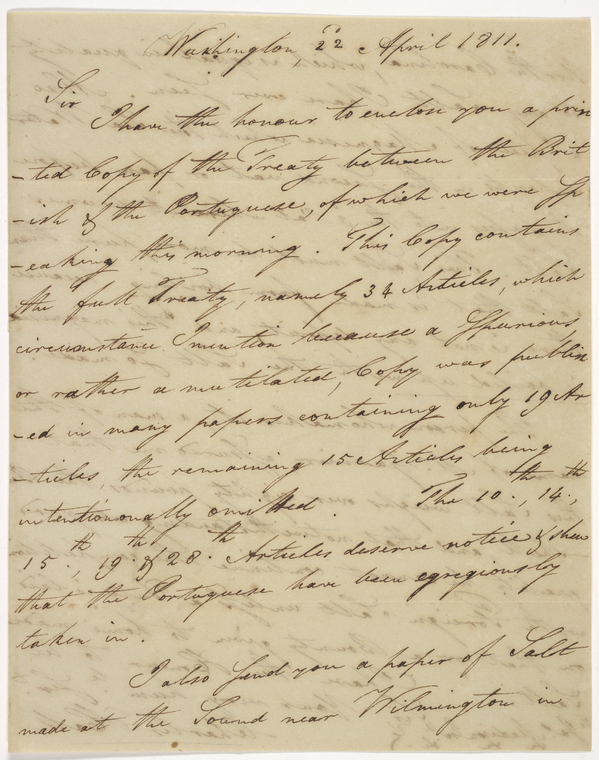 Washington, 22 April 1811.
Sir
I have the honour to enclose you a prin
-ted Copy of the Treaty between the Brit
-ish & the Portuguese, of which we were Sp
-eaking this morning. This Copy contains
the full Treaty, namely 34 Articles, which
circumstance I mention because a Spurious,
or rather a mutilated, Copy was publish
-ed in many papers containing only 19 Ar
-ticles, the remaining 15 Articles being
intentionally omitted. The 10th, 14th,
15th, 19th & 28th Articles deserve notice & shew
that the Portuguese have been egregiously
taken in.
I also Send you a paper of Salt
made at the Sound near Wilmington in